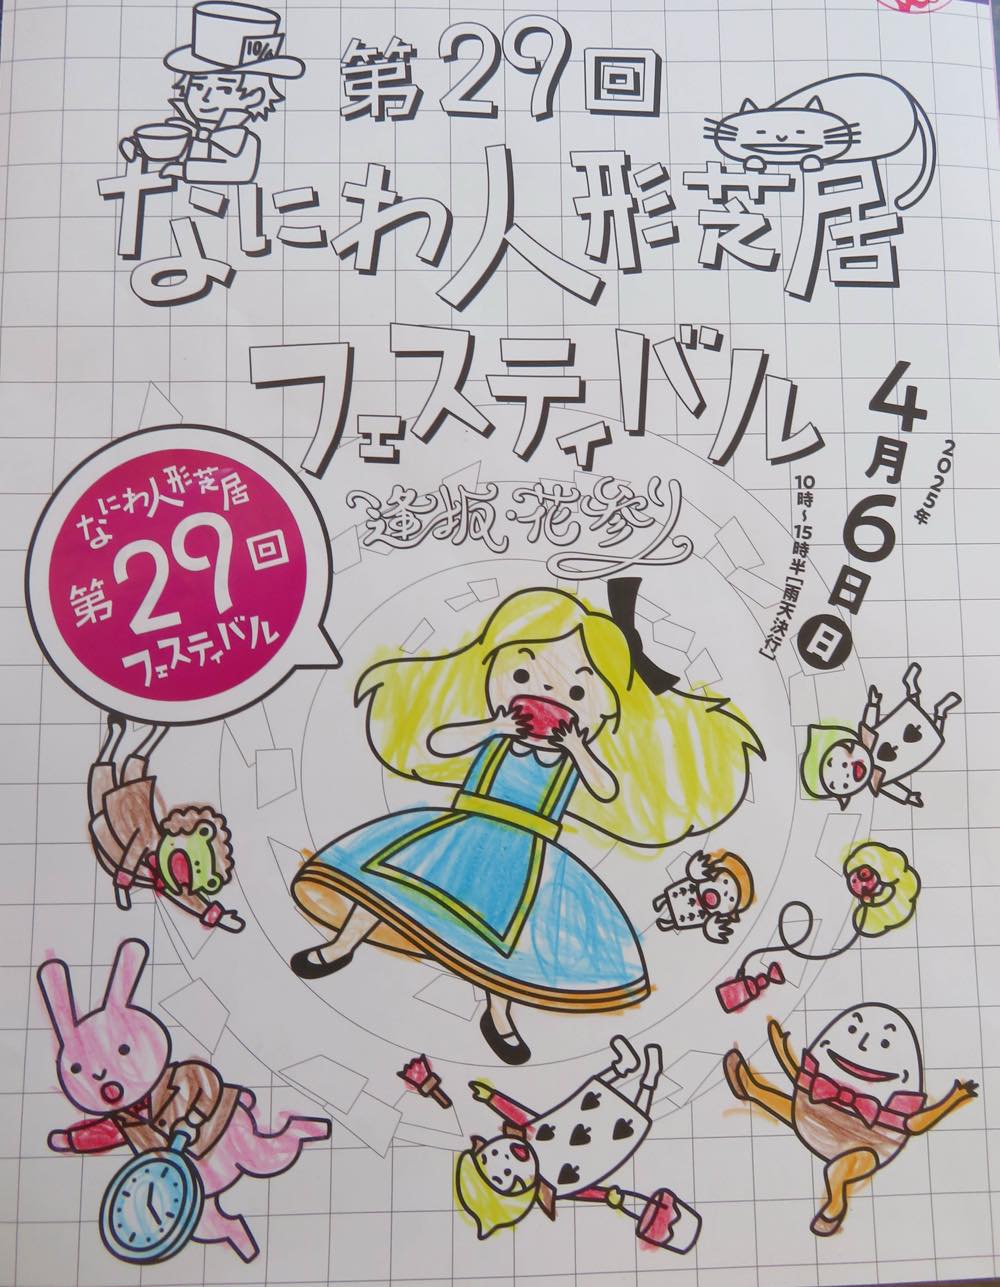 10/6
第29回
なにわ人形芝居
フェスティバル
逢坂・花参り
2025年
4月6日日
10時〜15時半[雨天決行]
なにわ人形芝居
第29回
フェスティバル